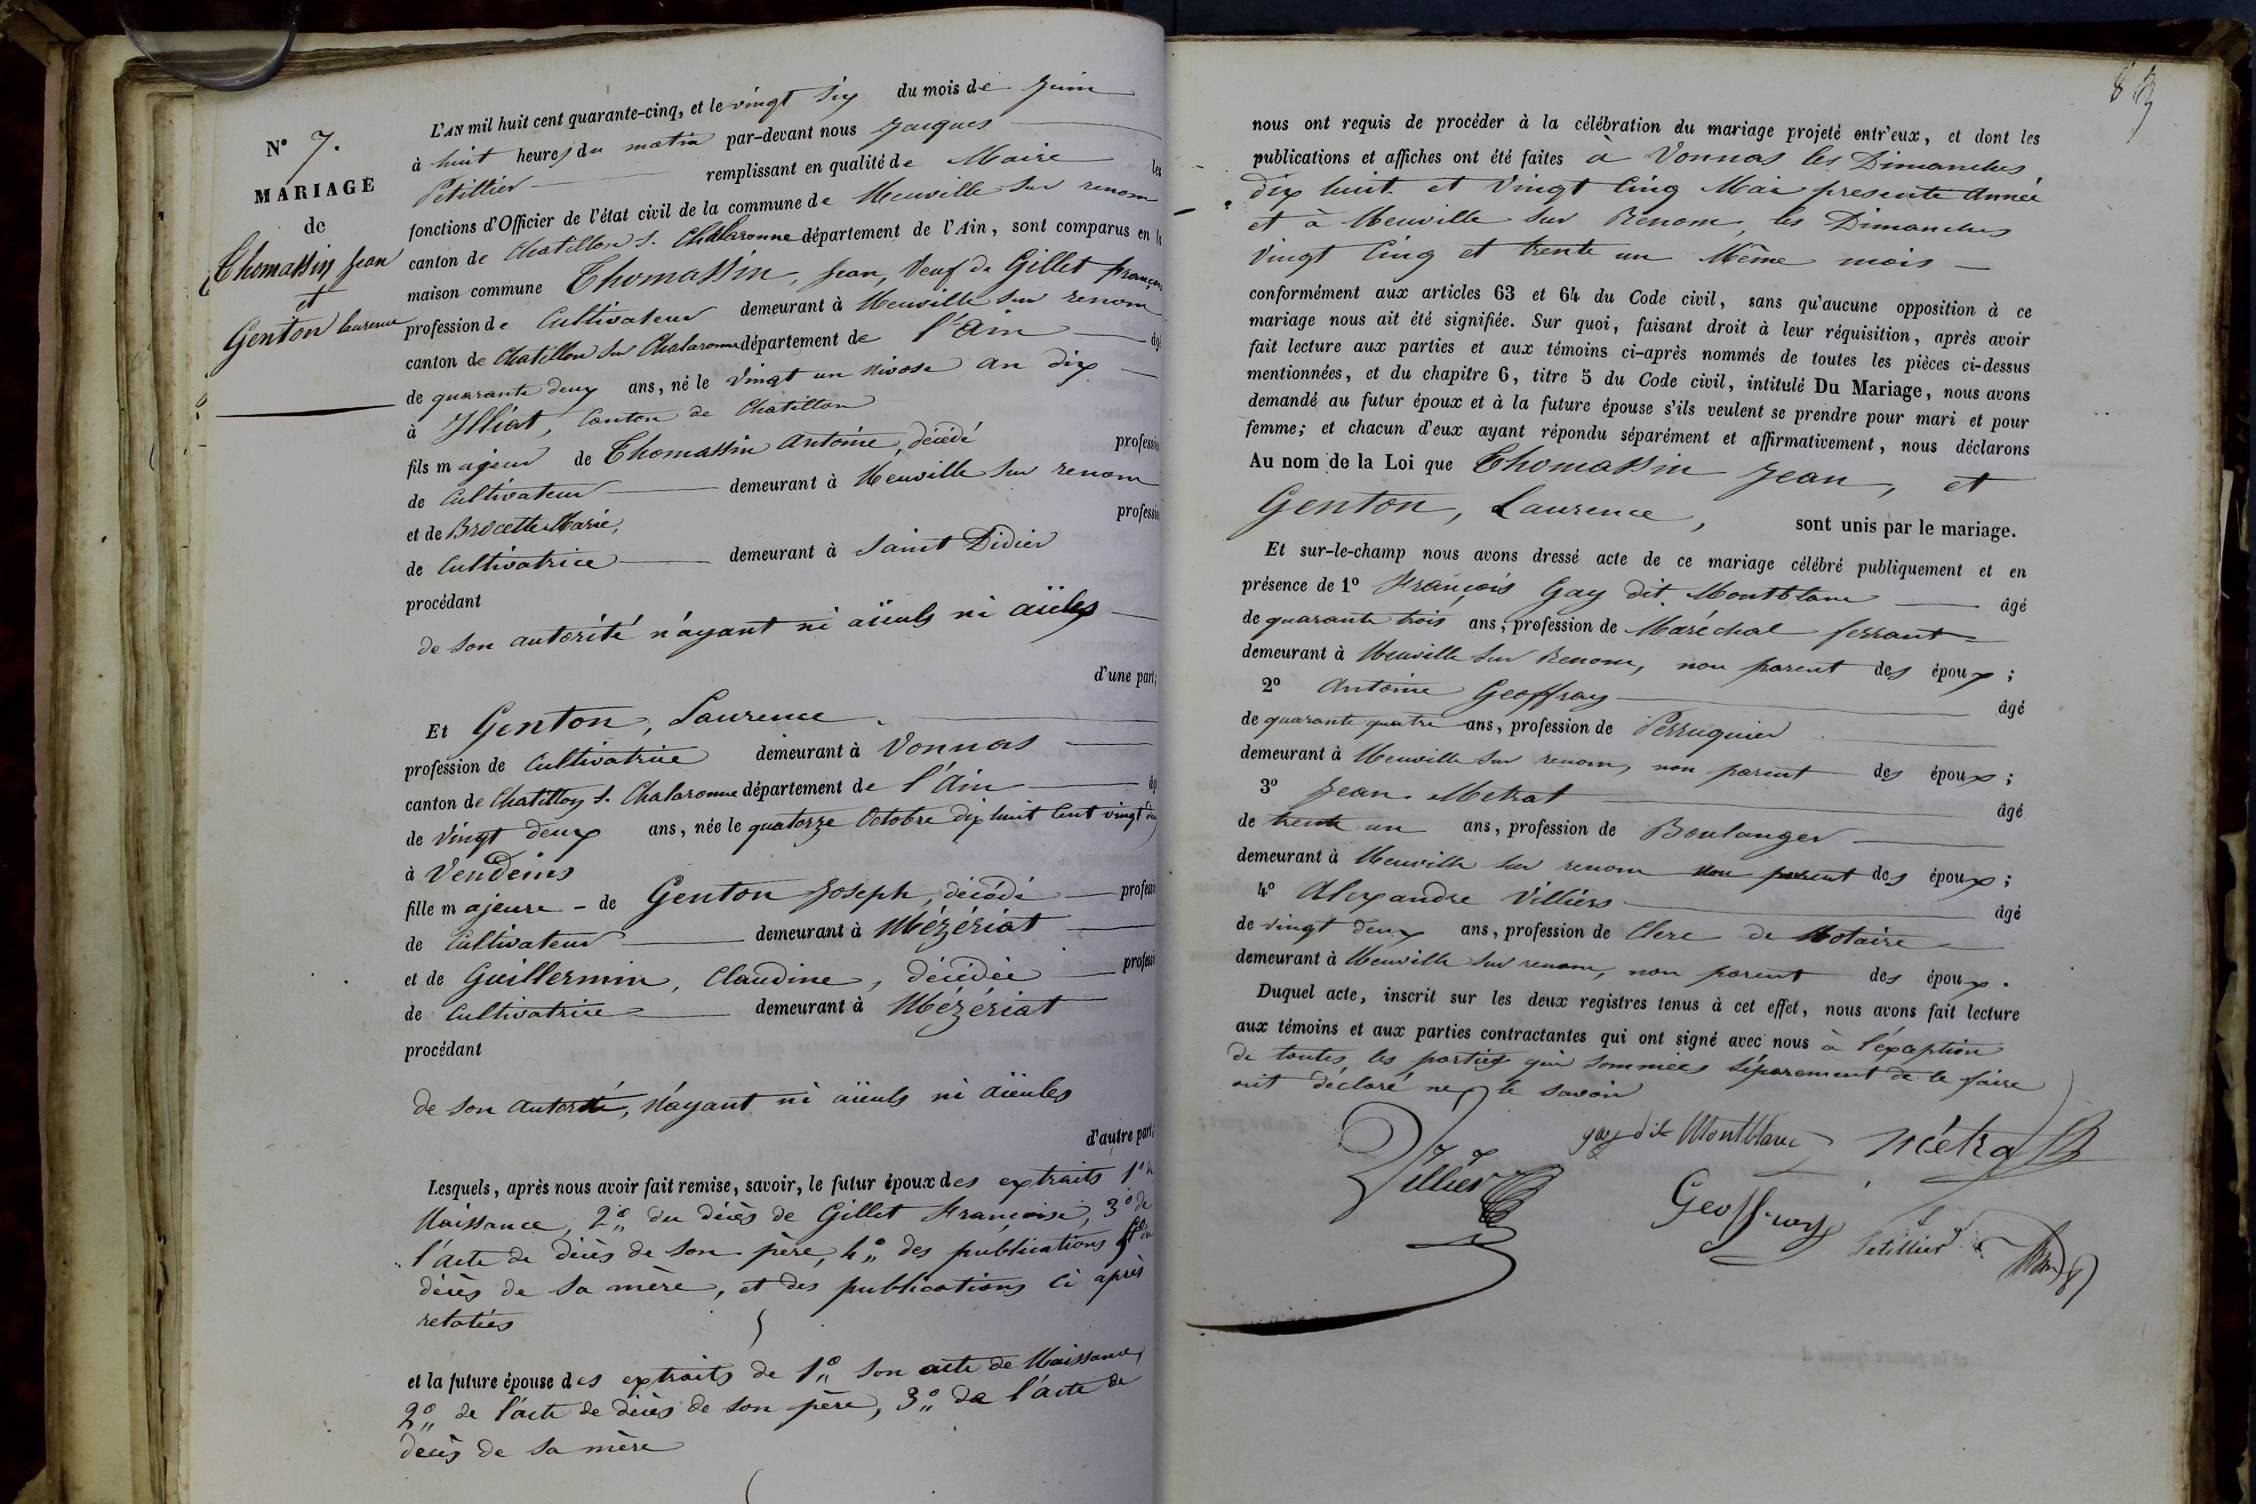 N° 7.
MARIAGE
de
Thomassin Jean
et
Genton Laurence
L'AN mil huit cent quarante-cinq, et le vingt six du mois de Juin
à huit heures du matin par-devant nous Jacques
Petillier remplissant en qualité de Maire les
fonctions d'Officier de l'état civil de la commune de Neuville sur renom
canton de Chatillon s. Chalaronne département de l'Ain, sont comparus en la
maison commune Thomassin, Jean, Veuf de Gillet françoise
profession de Cultivateur demeurant à Neuville sur renom
canton de Chatillon sur Chalaronne département de l'Ain âgé
de quarante deux ans, né le vingt un nivose an dix
à Illiat, Canton de Chatillon
fils majeur de Thomassin Antoine, décédé profession
de Cultivateur demeurant à Neuville sur renom
et de Brocette Marie, profession
de Cultivatrice demeurant à Saint Didier
procédant
de son autorité n'ayant ni aïeuls ni aïeules
d'une part;
Et Genton, Laurence
profession de Cultivatrice demeurant à Vonnas
canton de Chatillon s. Chalaronne département de l'Ain âgé
de vingt deux ans, née le quatorze Octobre dix huit Cent vingt deux
à Vendeins
fille majeure - de Genton Joseph, décédé profession
de Cultivateur demeurant à Mézériat
et de Guillermin, Claudine, décédée profession
de Cultivatrice demeurant à Mézériat
procédant
de son autorité, n'ayant ni aïeuls ni aïeules
d'autre part;
Lesquels, après nous avoir fait remise, savoir, le futur époux des extraits 1° de
Naissance, 2° du décès de Gillet Françoise, 3° de
l'acte de décès de son père, 4° des publications du
décès de sa mère, et des publications ci après
relatées
et la future épouse des extraits de 1° son acte de Naissance,
2° de l'acte de décès de son père, 3° de l'acte de
décès de sa mère
nous ont requis de procéder à la célébration du mariage projeté entr'eux, et dont les
publications et affiches ont été faites à Vonnas les Dimanches
dix huit et vingt Cinq Mai presente Année
et à Neuville sur Renom, les Dimanches
Vingt Cinq et trente un Même mois
conformément aux articles 63 et 64 du Code civil, sans qu'aucune opposition à ce
mariage nous ait été signifiée. Sur quoi, faisant droit à leur réquisition, après avoir
fait lecture aux parties et aux témoins ci-après nommés de toutes les pièces ci-dessus
mentionnées, et du chapitre 6, titre 5 du Code civil, intitulé Du Mariage, nous avons
demandé au futur époux et à la future épouse s'ils veulent se prendre pour mari et pour
femme; et chacun d'eux ayant répondu séparément et affirmativement, nous déclarons
Au nom de la Loi que Thomassin Jean, et
Genton, Laurence, sont unis par le mariage.
Et sur-le-champ nous avons dressé acte de ce mariage célébré publiquement et en
présence de 1° François Gay dit Montblanc âgé
de quarante trois ans, profession de Maréchal ferrant
demeurant à Neuville sur Renom, non parent des époux;
2° Antoine Geoffray âgé
de quarante quatre ans, profession de Perruquier
demeurant à Neuville sur renom, non parent des époux;
3° Jean Metrat âgé
de trente un ans, profession de Boulanger
demeurant à Neuville sur renom non parent des époux;
4° Alexandre Villiers âgé
de vingt deux ans, profession de Clerc de Notaire
demeurant à Neuville sur renom, non parent des époux.
Duquel acte, inscrit sur les deux registres tenus à cet effet, nous avons fait lecture
aux témoins et aux parties contractantes qui ont signé avec nous à l'exception
de toutes les parties qui sommées séparement de le faire
ont déclaré ne le savoir
gay dit Montblanc Métra
Villier
Geoffray
Petillier